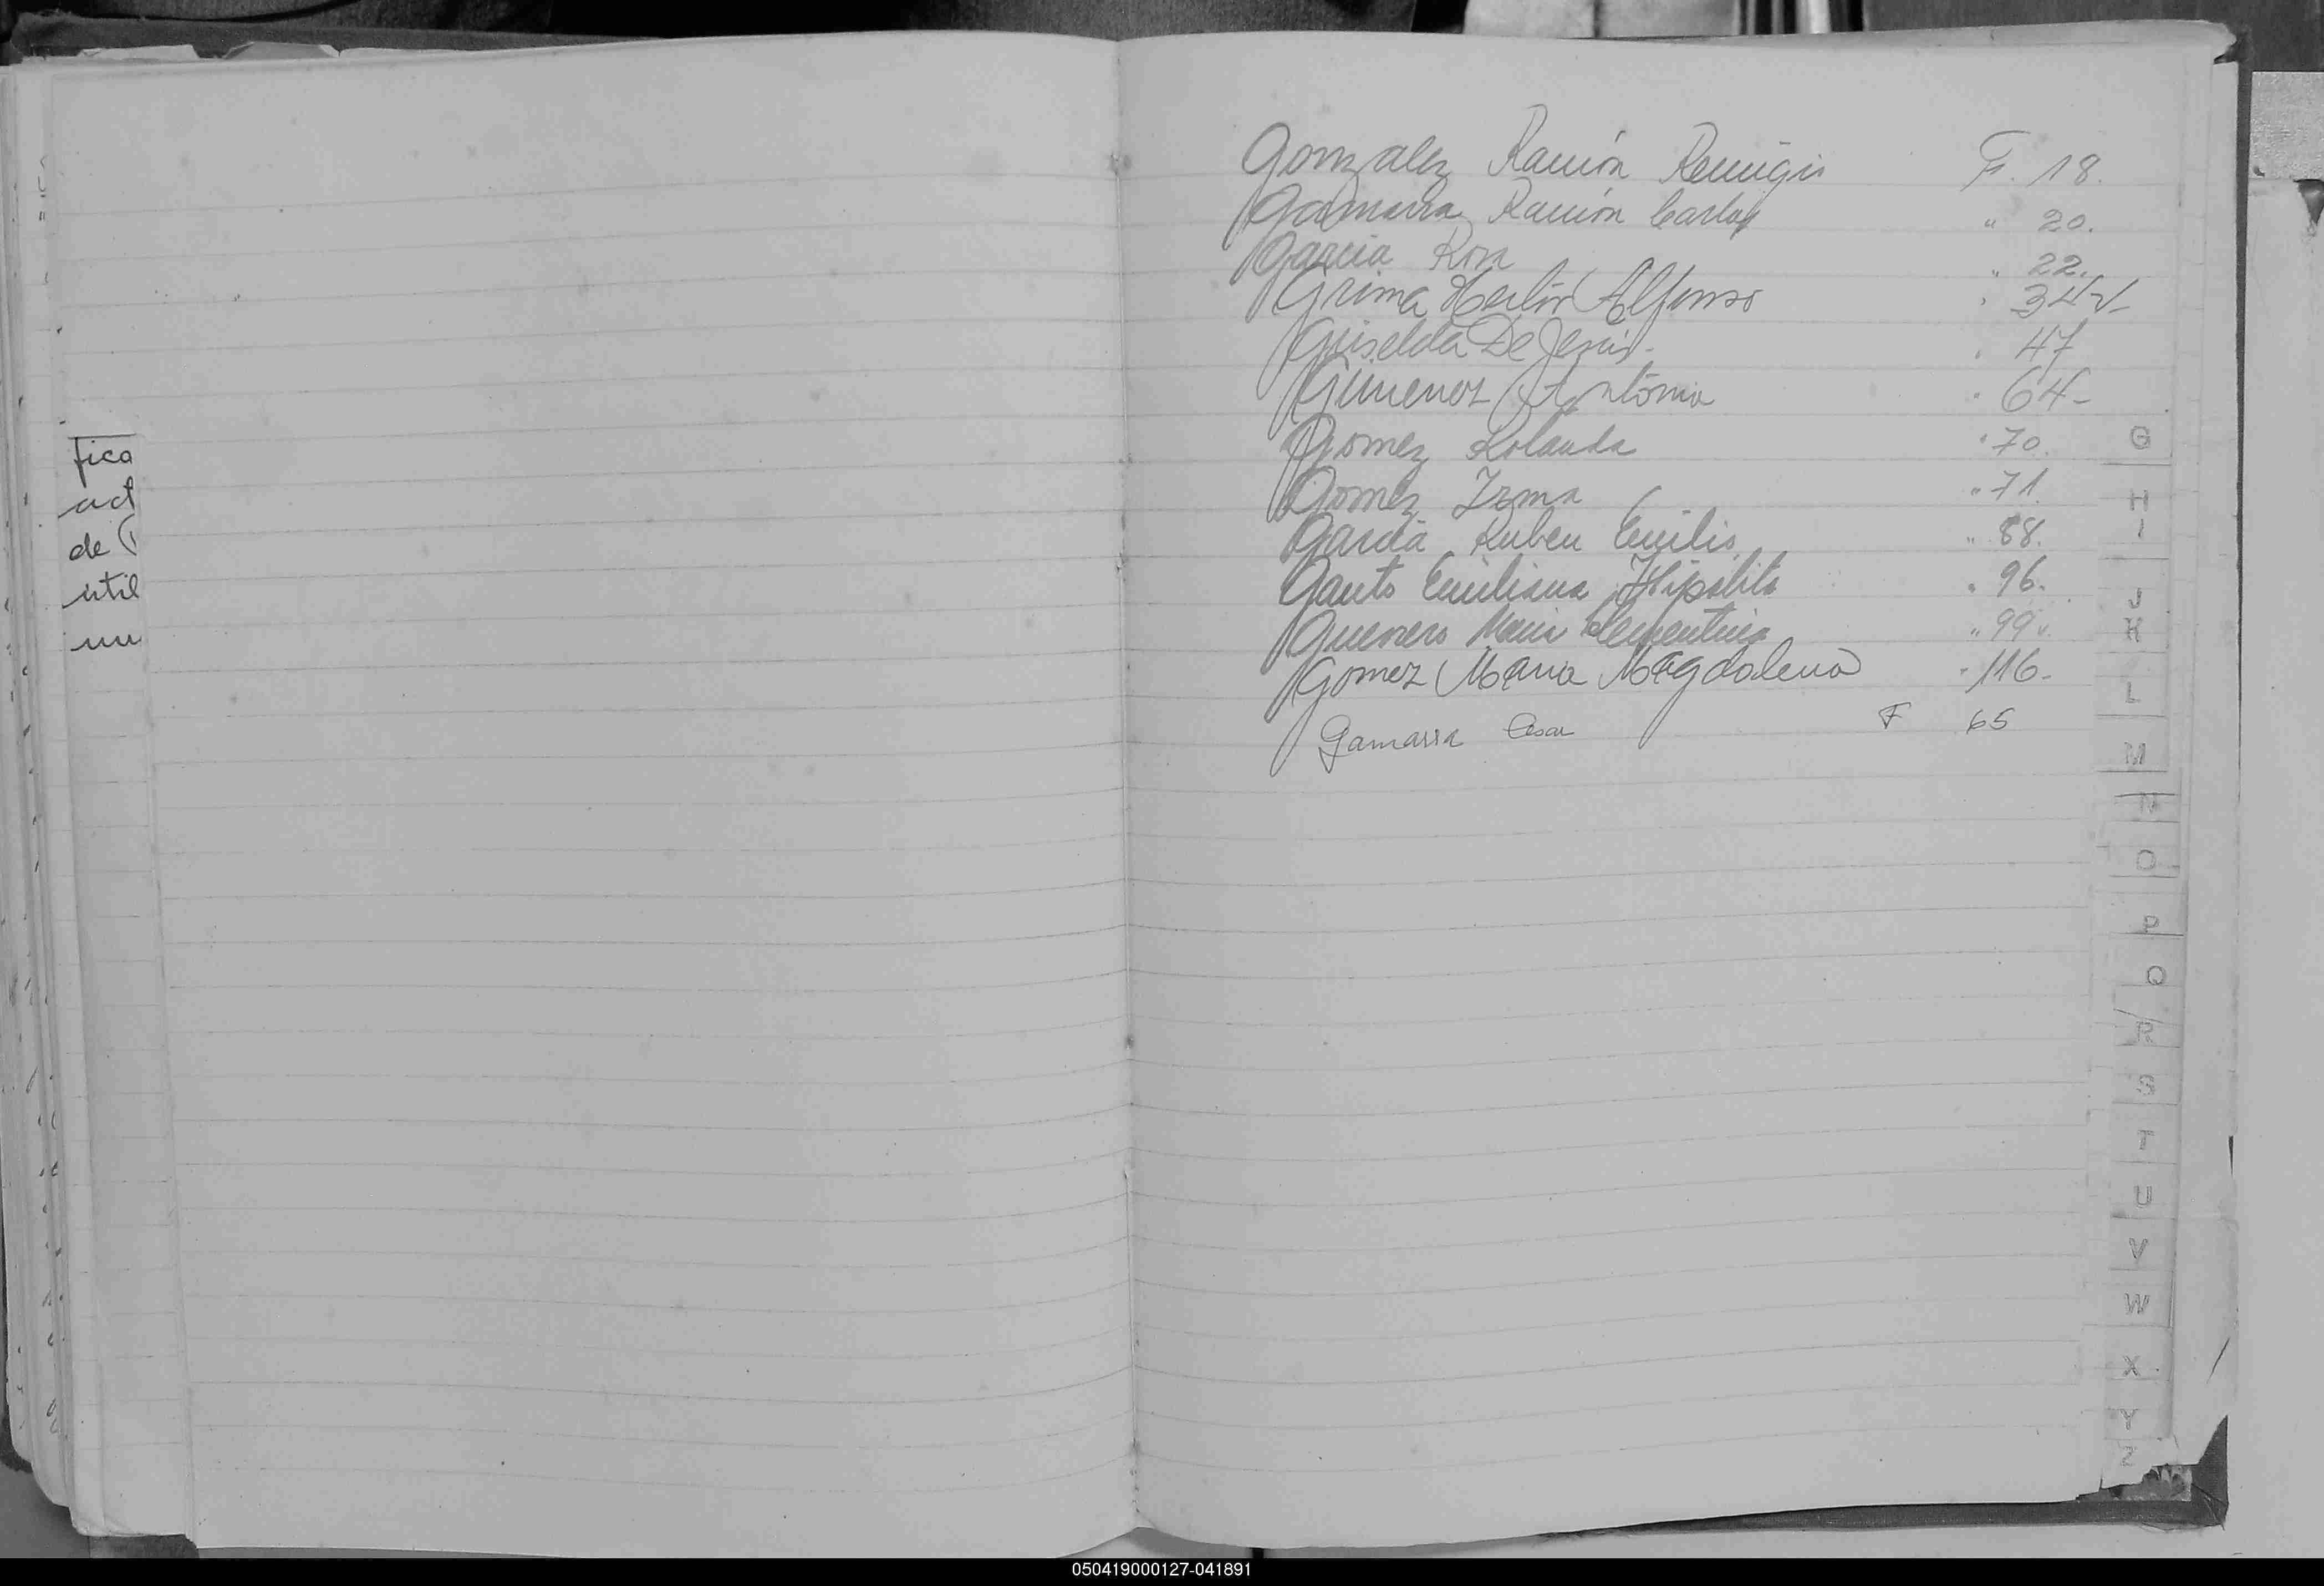 fica
act
de
util
Gonzalez Ramón Remigio F. 18.
Gamarra Ramón Carlos " 20.
Garcia Rosa " 22.
Grima Alfonso " 34 v
Griselda De Jesús. " 47
Gimenez Antonia " 64-
Gomez Rolanda " 70.
Gomez Irma " 71.
Garcia Ruben Emilio " 88.
Gauto Emiliana Hipolita " 96.
Guerrero Maria Clementina " 99 v.
Gomez Maria Magdalena " 116-
Gamarra Cesar F 65
G
H
I
J
K
L
M
N
O
P
Q
R
S
T
U
V
W
X
Y
Z
050419000127-041891